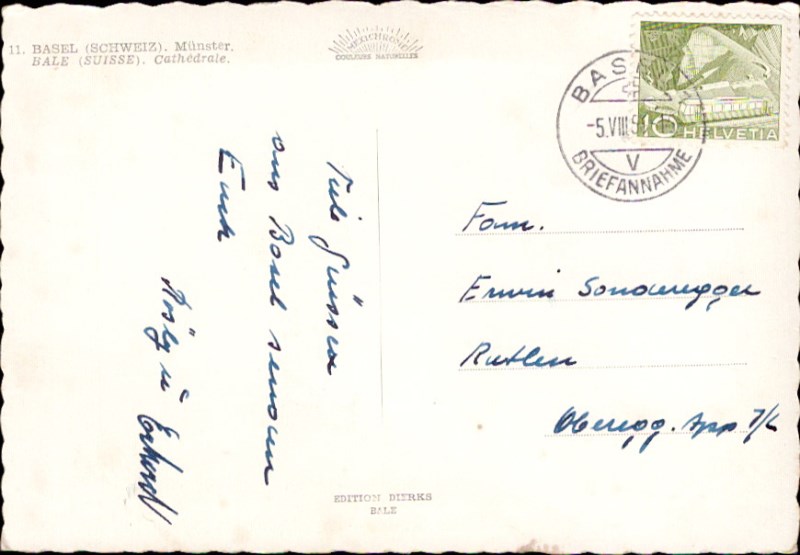 11. BASEL (SCHWEIZ). Münster.
BALE (SUISSE). Cathédrale.
MEXICHROME
COULEURS NATURELLES
BASEL
-5.VIII.5
V
BRIEFANNAHME
10 HELVETIA
Viele Grüsse
aus Basel senden
Euch
Rösly u Erhardt
Fam.
Erwin Sonderegger
Rutlen
Oberegg. App I/R
EDITION DIERKS
BALE